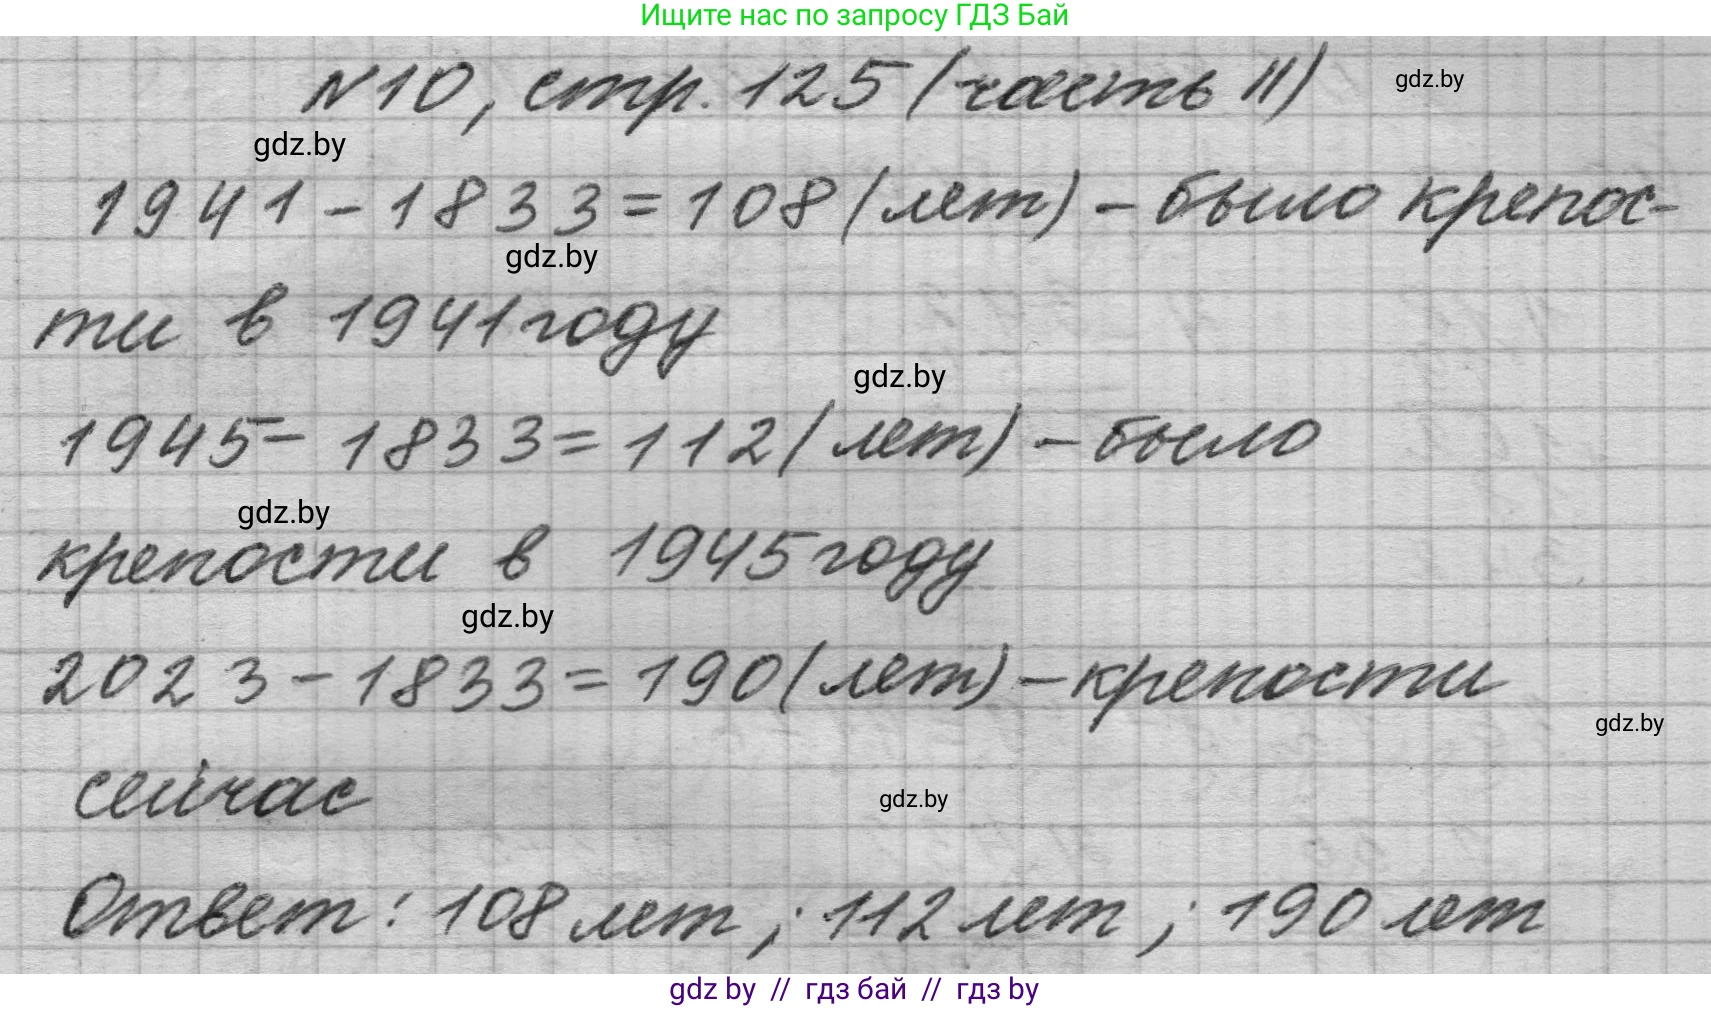 Ищите нас по запросу ГДЗ Бай
№10, стр. 125 (часть II)
gdz.by
gdz.by
1941 - 1833 = 108 (лет) - было крепос-
gdz.by
ти в 1941 году
gdz.by
1945 - 1833 = 112 (лет) - было
gdz.by
крепости в 1945 году
gdz.by
2023 - 1833 = 190 (лет) - крепости
gdz.by
сейчас
gdz.by
Ответ: 108 лет; 112 лет; 190 лет
gdz by // гдз бай // гдз by